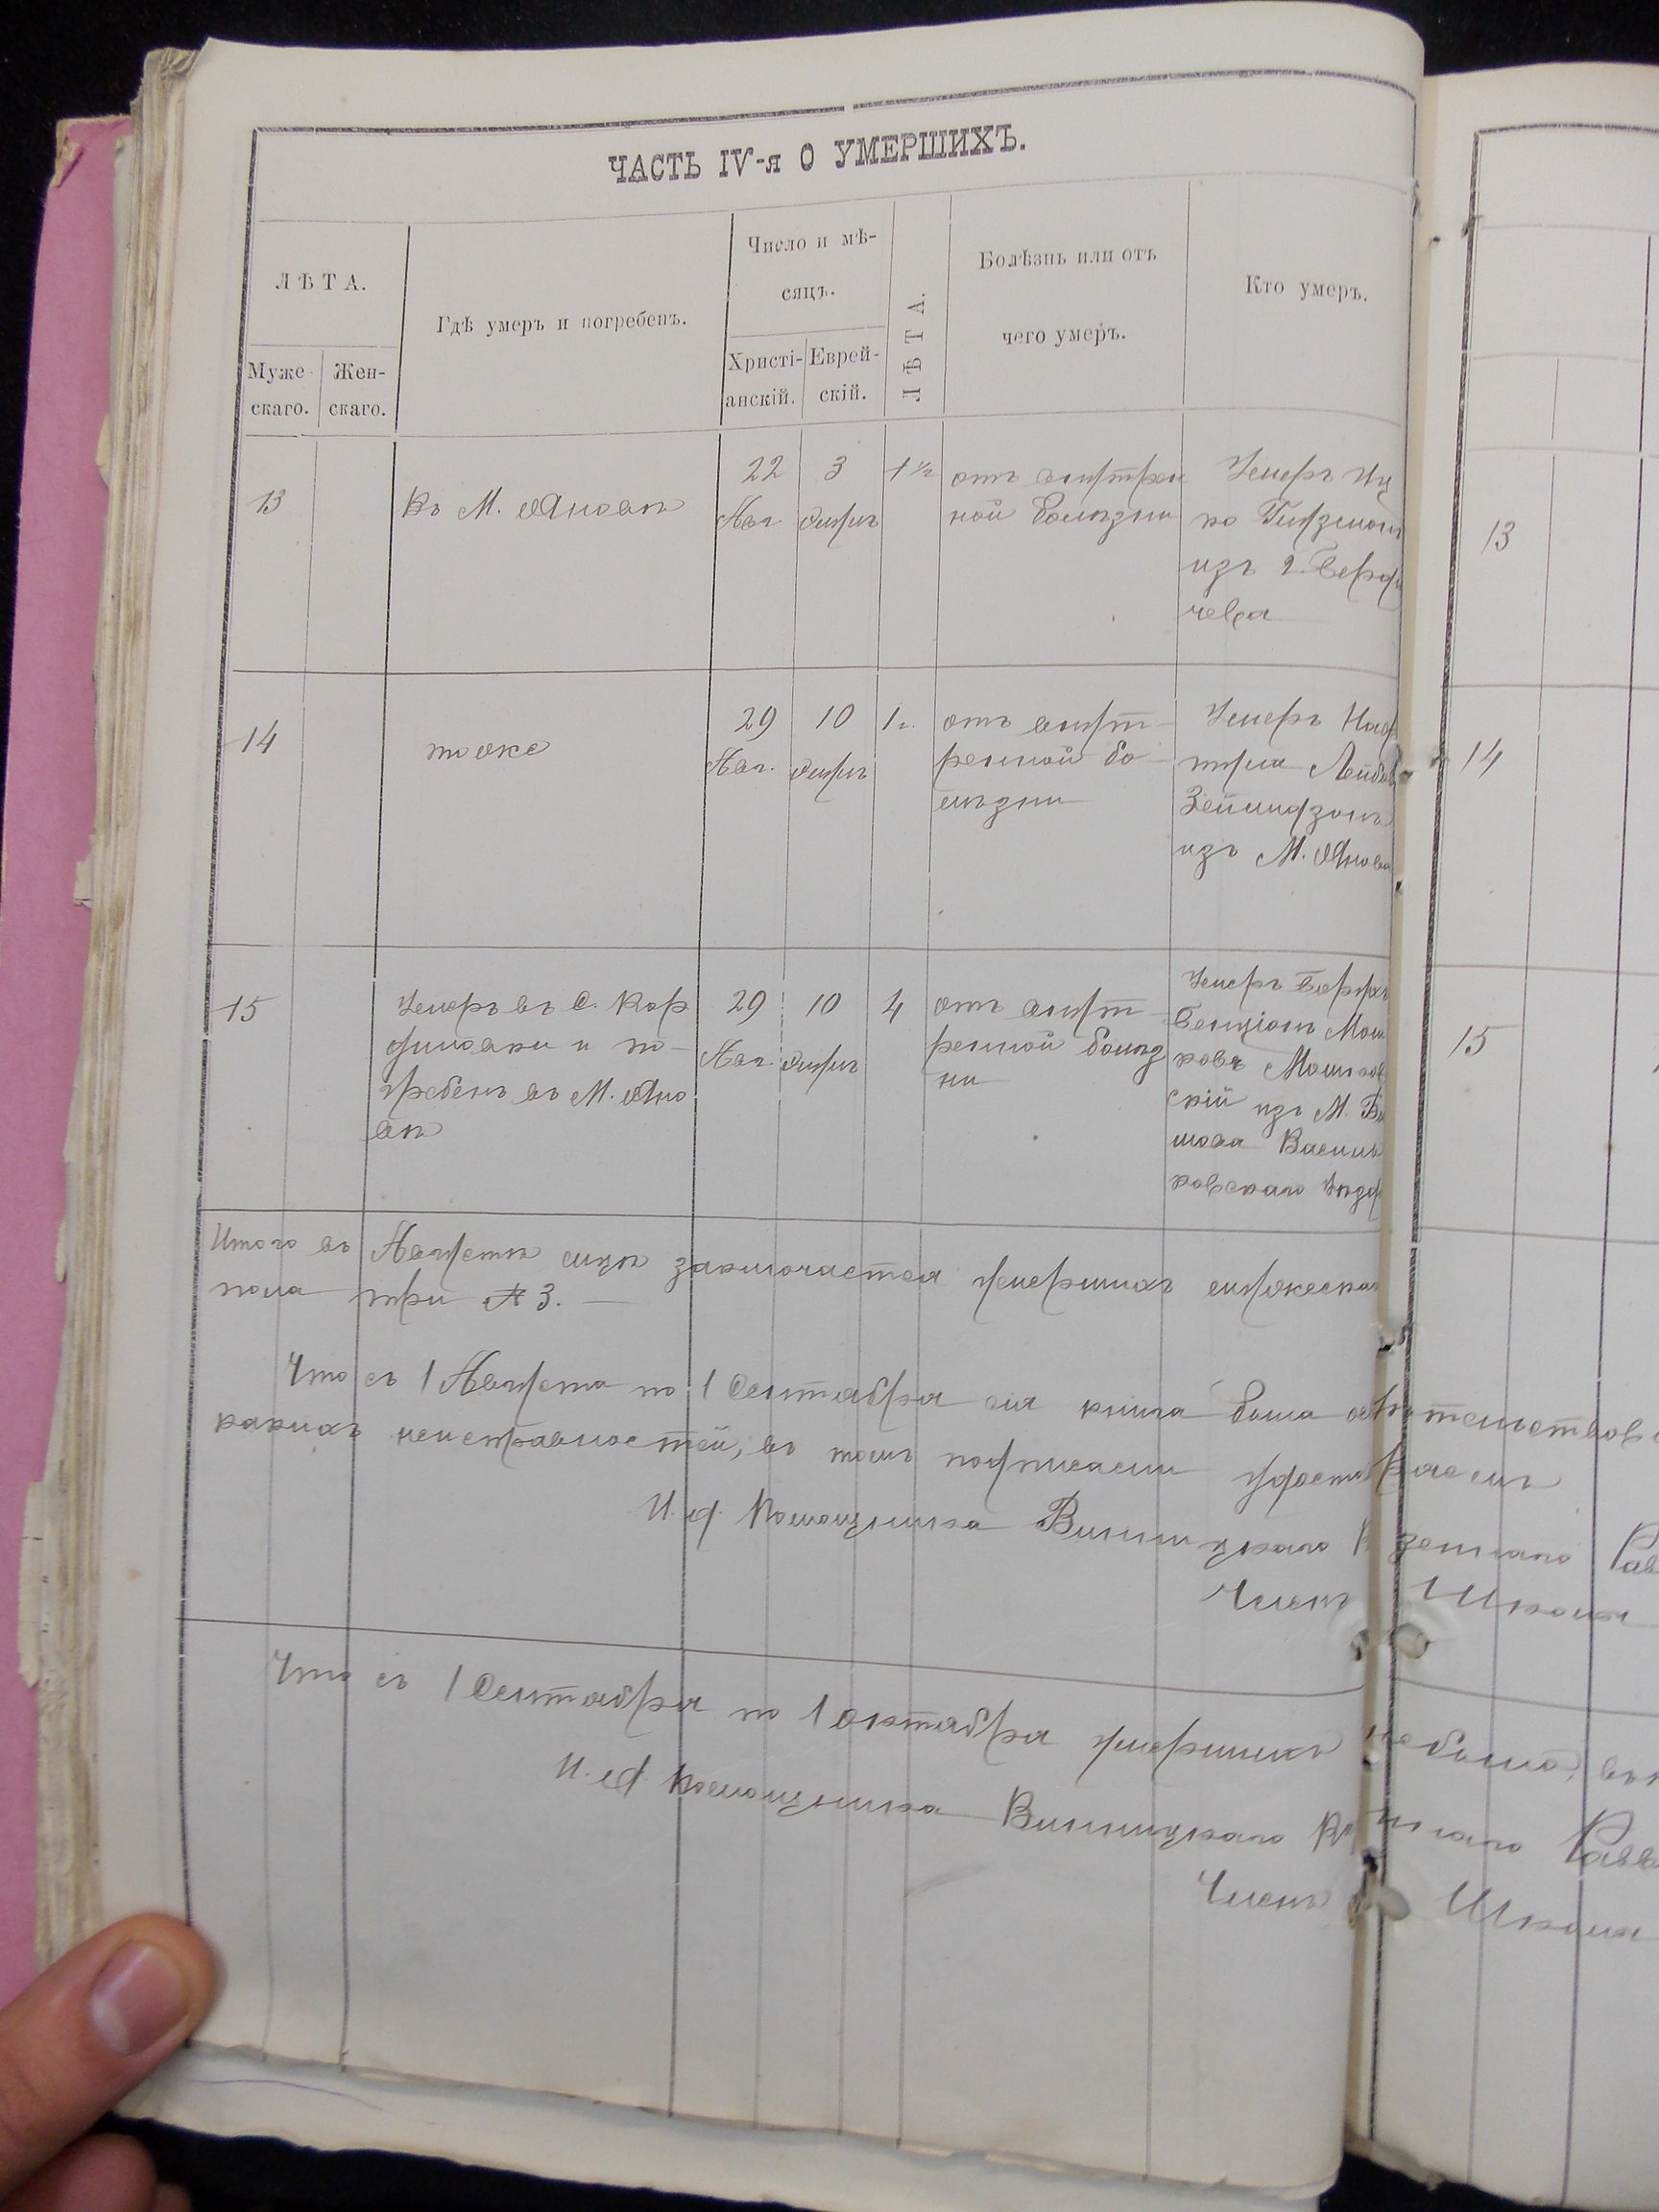 ЧАСТЬ IV-я О УМЕРШИХЪ.
ЛѢТА.
Муже-
скаго.
Жен-
скаго.
Гдѣ умеръ и погребенъ.
Число и мѣ-
сяцъ.
Христі-
анскій.
Еврей-
скій.
ЛѢТА.
Болѣзнь или отъ
чего умеръ.
Кто умеръ.
13
въ М. Яновѣ
22
Авг
3
Элулъ
1 ½
отъ внутрен
ной болѣзни
Умеръ Иц
ко
изъ г. Берди
чева
13
14
тоже
29
Авг.
10
Элулъ
1 г.
отъ внут-
ренной бо-
лѣзни
Умеръ Наф
тула Лейбов
Зейлидзонъ
изъ М. Янова
14
15
Умеръ въ с. Кор
дилевки и по-
гребенъ въ М. Яно
вѣ
29
Авг
10
Элулъ
4
отъ внут-
ренной болѣз
ни
Умеръ Борухъ
Бенціонъ Мош
ковъ Мошков
скій изъ М. Бѣ
лова Василь
ковскаго Уѣзд
15
Итого въ Августѣ м-цѣ заключается умершихъ мужеска
пола три № 3. —
Что съ 1 Августа по 1 Сентября сія книга была освѣтельствов
какихъ неисправностей, въ томъ подписами удостовѣряемъ
И. д. Помощника Винницкаго Казеннаго Рав
Членъ Школы
Что съ 1 Сентября по 1 Октября умершихъ небыло, въ
И. д. Помощника Винницкаго Рав
Членъ Школы